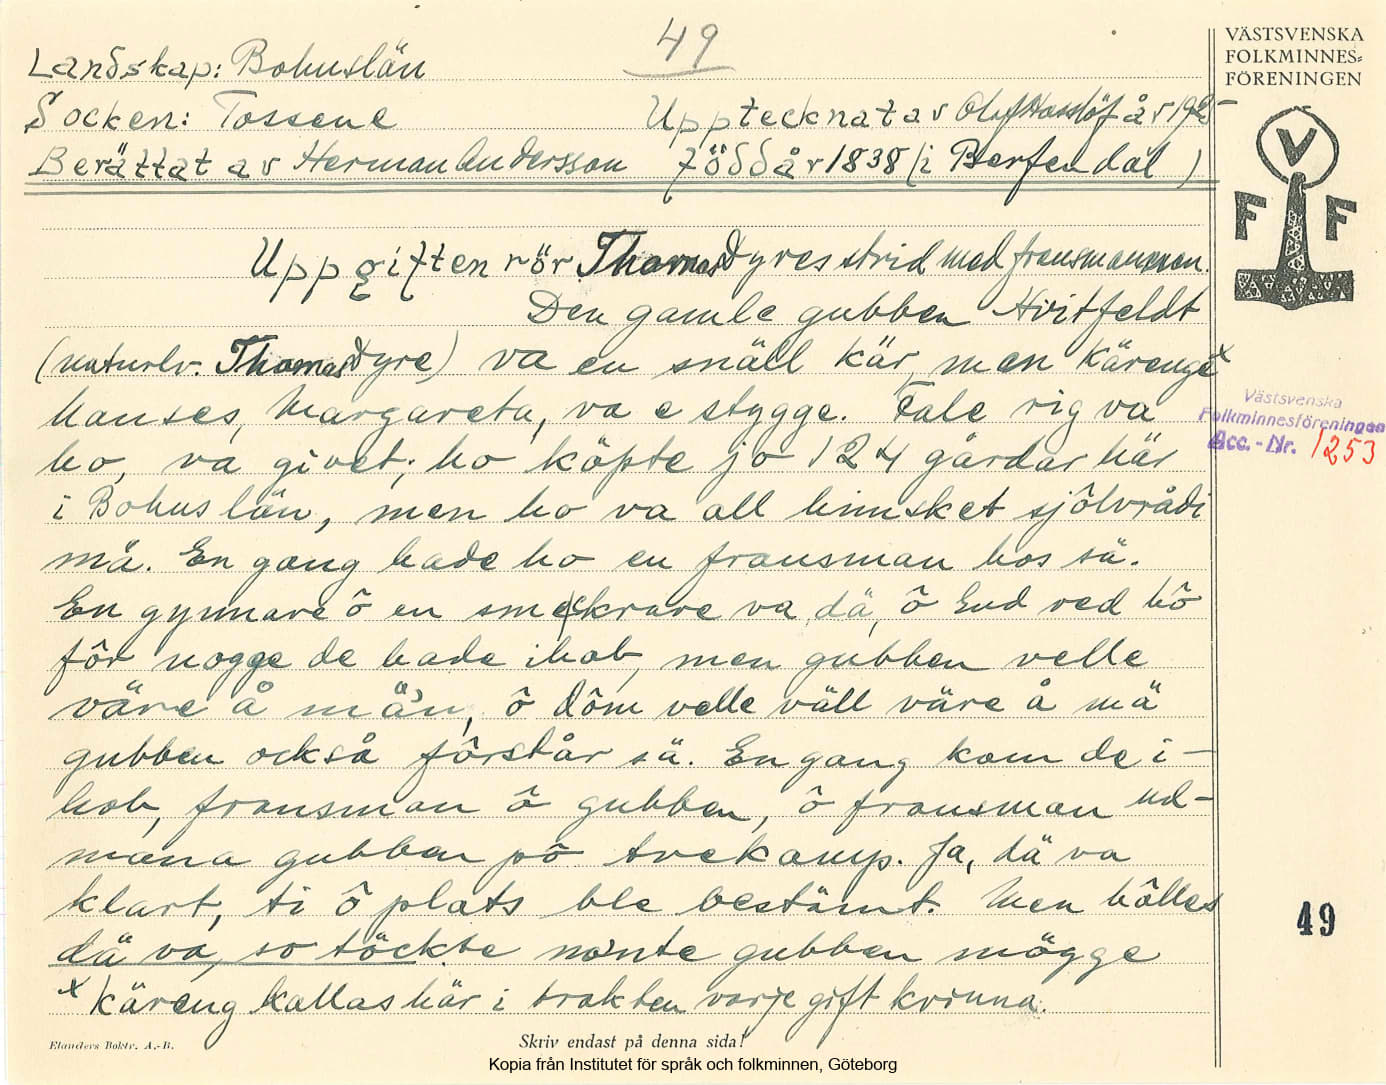 49
VÄSTSVENSKA
FOLKMINNES-
FÖRENINGEN
V
F F
Landskap: Bohuslän
Socken: Tossene Upptecknat av Olof Hasslöf år 192-
Berättat av Herman Andersson född år 1838 (i Berfendal)
Uppgiften rör Thomas Dyres strid med fransmannen.
Den gamle gubben Hvitfeldt
(naturlv. Thomas Dyre) va en snäll kär, men kärengx
hanses, Margareta, va e stygge. Fale rig va
ho, va givet; ho köpte jo 124 gårdar här
i Bohuslän, men ho va all himsket sjôlvrådi
mä. En gang hade ho en fransman hos sä.
En gynnare ô en smickrare va dä, ô Gud ved hô
fôr nogge de hade ihob, men gubben velle
väre å män, ô dôm velle väll väre å mä
gubben också fôrstår sä. En gang kom de i-
hob, fransman ô gubben, ô fransman ud-
mana gubben pô tvekamp. Ja, dä va
klart, ti ô plats ble bestämt. Men hôlles
dä va, so töckte nånte gubben mögge
x käreng kallas här i trakten varje gift kvinna.
Västsvenska
Folkminnesföreningen
Acc.-Nr. 1253
49
Elanders Boktr. A.-B.
Skriv endast på denna sida!
Kopia från Institutet för språk och folkminnen, Göteborg